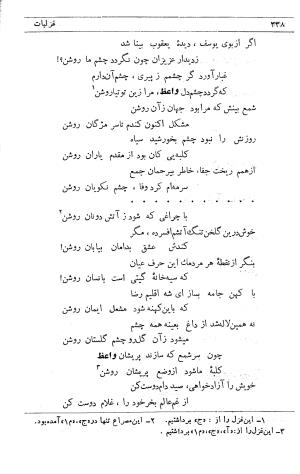 ۳۳۸ غزلیات
اگر ازبوی یوسف ، دیدهٔ یعقوب بینا شد
زدیدار عزیزان چون نگردد چشم ما روشن؟!
غبارآورد گر چشمم ز پیری ، چشم آن دارم
که گردد چشم دل واعظ، مرا زین توتیا روشن۱
شمع بینش که مرا بود جهان زآن روشن
مشکل اکنون کندم تا سر مژگان روشن
روزنش را نبود چشم بخورشید سپاه
کلبه‌یی کان بود از مقدم یاران روشن
از هم ریخت جفا، خاطر بیرحمان جمع
سرمه‌ام کرد وفا ، چشم نکویان روشن
. . . . . . . . . . . . . .
با چراغی که شود ز آتش دونان روشن۲
خوش درین گلخن تنگ آتشم افسرده ، مگر
کندش عشق بدامان بیابان روشن!
بنگر از نقطهٔ هر مردمك این حرف عیان
که سیه خانهٔ گیتی است بانسان روشن!
با کهن جامه بساز ای شه اقلیم رضا
که باین کهنه شود مشعل ایمان روشن
نه همین لاله شد از داغ بعینه همه چشم
میشود زآن گل رو چشم گلستان روشن
چون سر شمع که سازند پریشان واعظ
کلبهٔ ما شود از وضع پریشان روشن۳
خویش را آزاد خواهی، سیددام دوست کن
از غم عالم بخر خود را ، غلام دوست کن
۱- این غزل را از : «ج» برداشتیم. ۲- این مصراع تنها در «ج»، «م۱» آمده بود.
۳- این غزل را از: «آ»، «ج»، «م۱» برداشتیم .